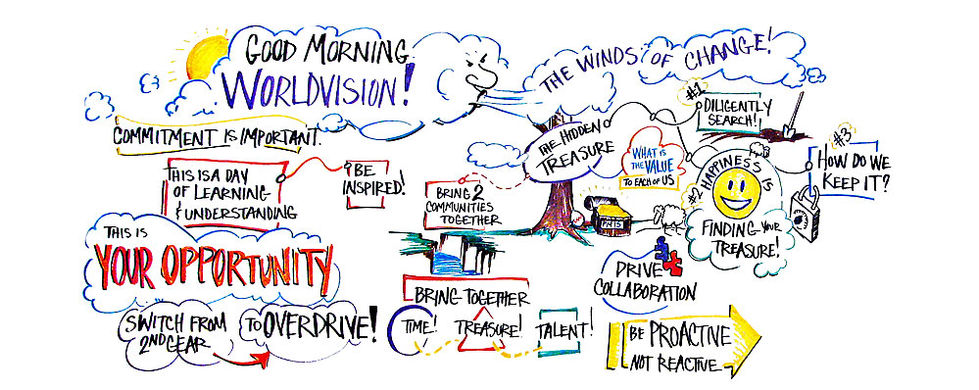 GOOD MORNING
WORLDVISION!
COMMITMENT IS IMPORTANT.
THIS IS A DAY
OF LEARNING
& UNDERSTANDING
BE
INSPIRED!
THIS IS
YOUR OPPORTUNITY
SWITCH FROM
2ND GEAR
TO OVERDRIVE!
THE WINDS OF CHANGE!
THE HIDDEN
TREASURE
#1
DILIGENTLY
SEARCH!
WHAT IS
THE VALUE
TO EACH OF US
#2
HAPPINESS IS
FINDING YOUR
TREASURE!
#3
HOW DO WE
KEEP IT?
BRING 2
COMMUNITIES
TOGETHER
BRING TOGETHER
TIME!
TREASURE!
TALENT!
DRIVE
COLLABORATION
BE PROACTIVE
NOT REACTIVE